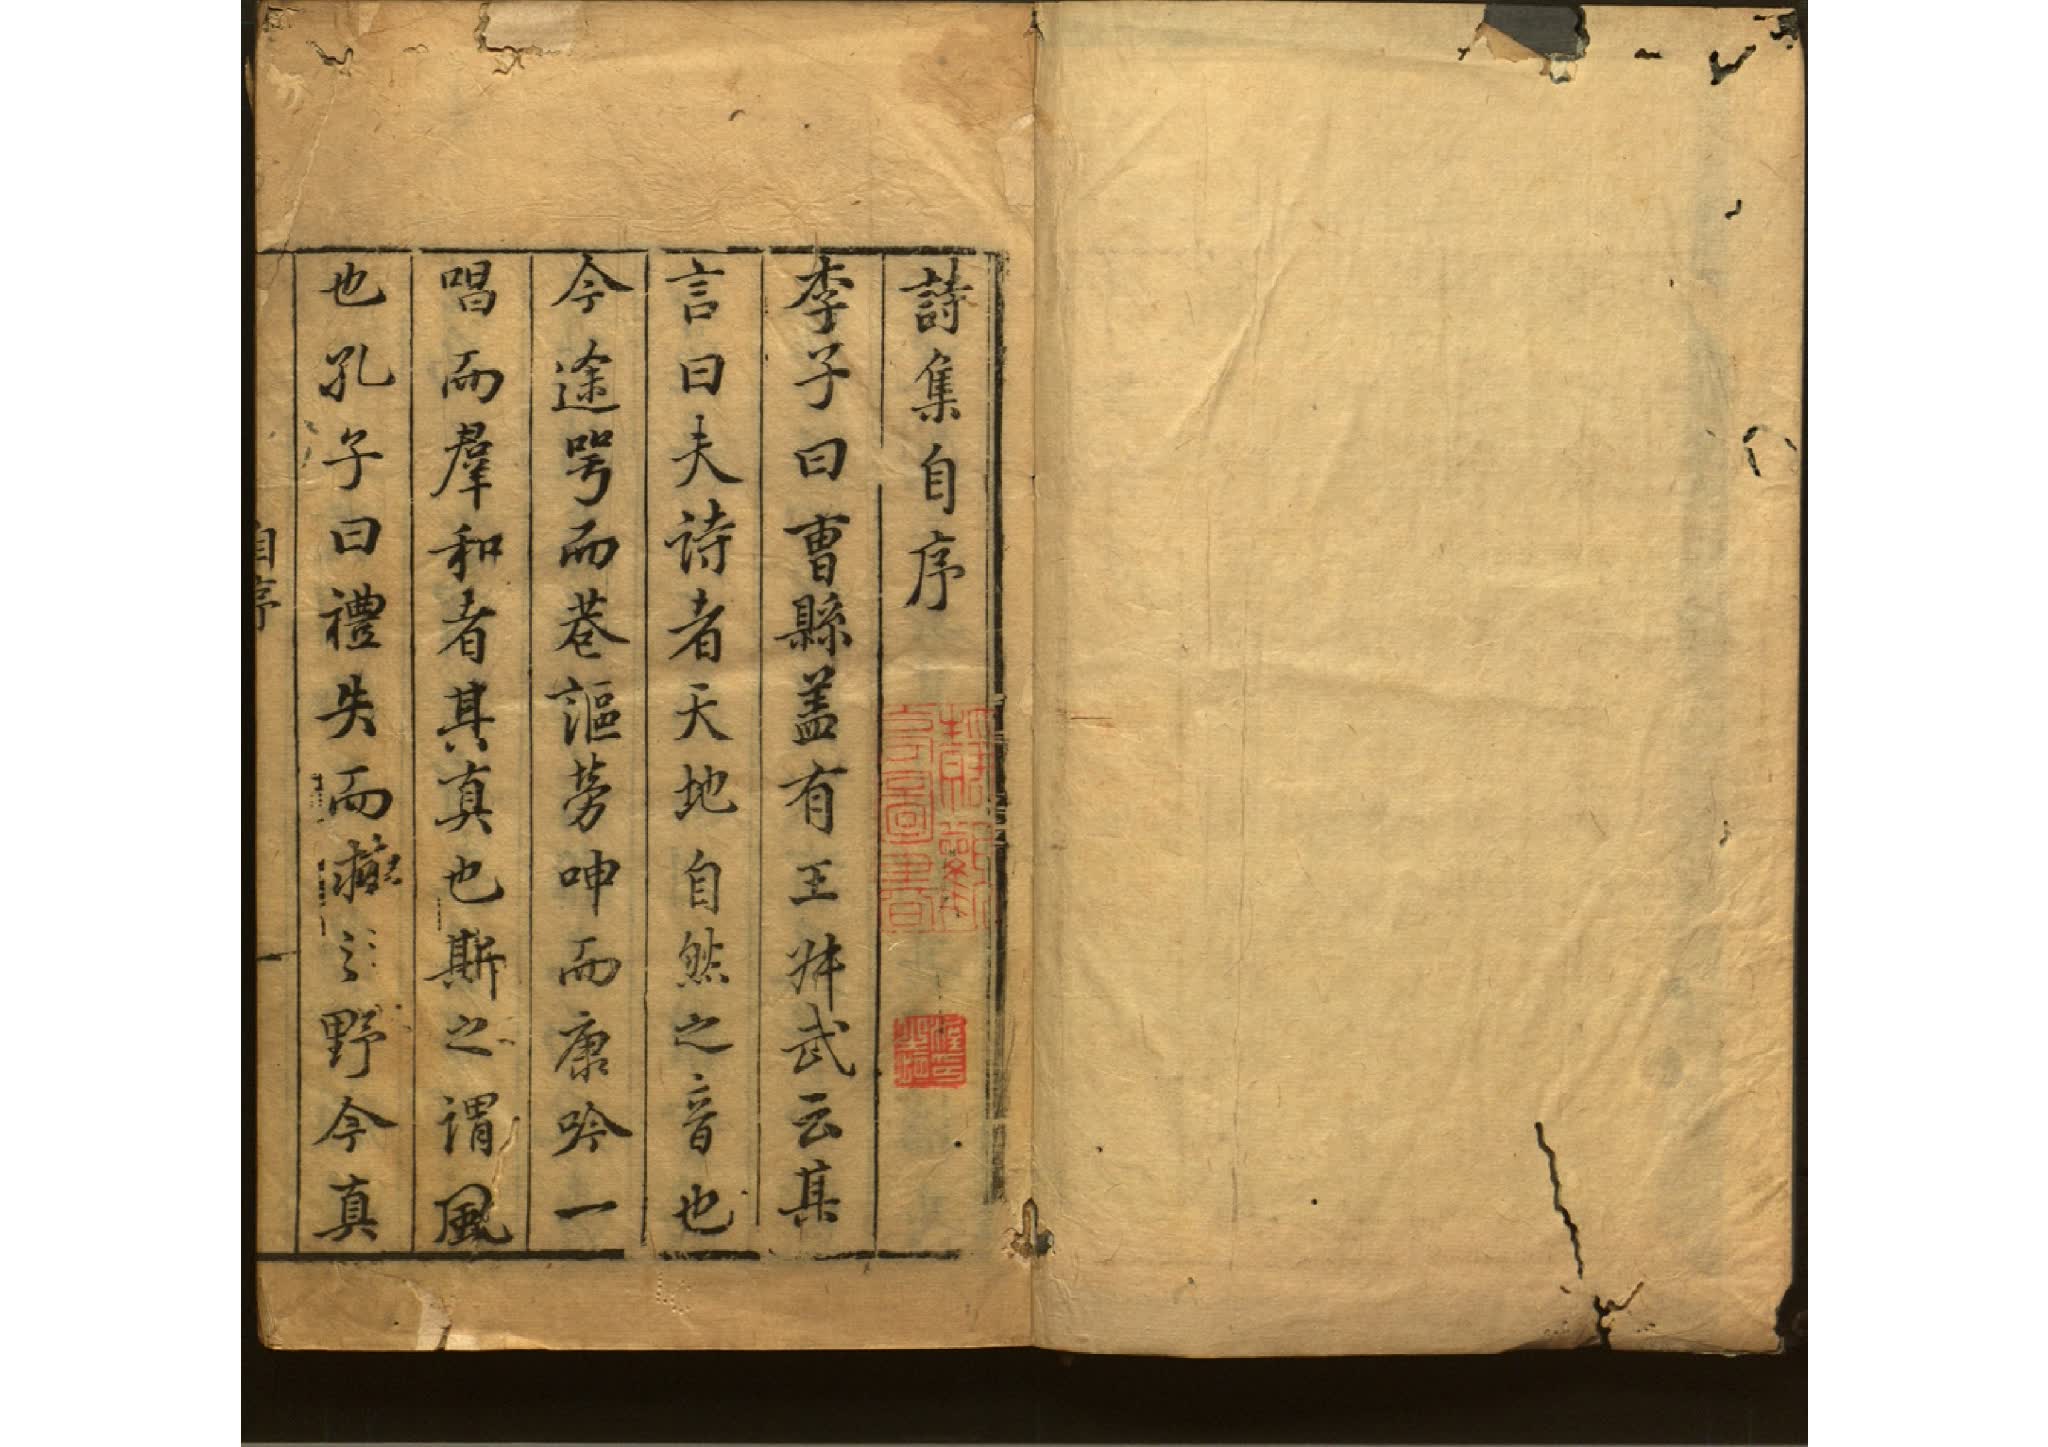 詩集自序
李子曰曹縣盖有王叔武云其
言曰夫詩者天地自然之音也
今途咢而巷謳勞呻而康吟一
唱而羣和者其真也斯之謂風
也孔子曰禮失而之野今真
自序